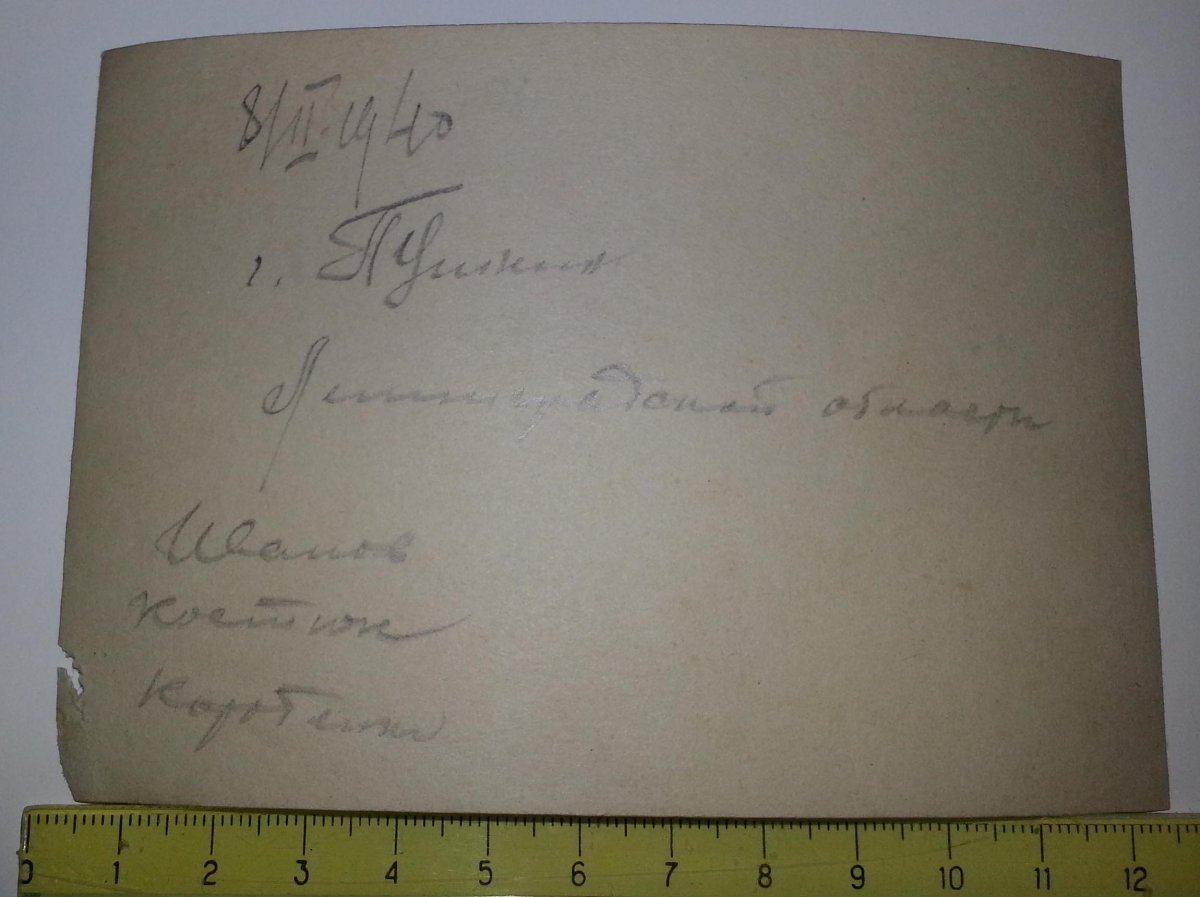 8/II 1940
г. Пушкин
Ленинградской области
Иванов
Костюк
0 1 2 3 4 5 6 7 8 9 10 11 12